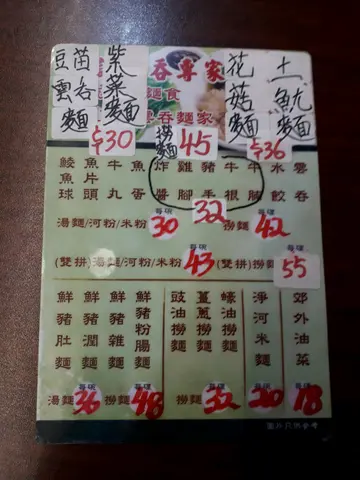 豆苗雲吞麵
$30
紫菜麵
吞專家
麵食
吞麵家
撈麵
45
花菇麵
$36
土魷麵
鯪魚球
魚片頭
牛丸
魚蛋
炸醬
雞腳
豬手
牛根
牛腩
水餃
雲吞
32
湯麵/河粉/米粉 每碗 30 撈麵 每碗 42
(雙拼)湯麵/河粉/米粉 每碗 43 (雙拼)撈麵 每碗 55
鮮豬肚麵
鮮豬潤麵
鮮豬雜麵
鮮豬粉腸麵
豉油撈麵
薑蔥撈麵
蠔油撈麵
淨河米麵
郊外油菜
湯麵 每碗 36 撈麵 每碗 48 撈麵 每碗 32 每碗 20 每碟 18
圖片只供參考